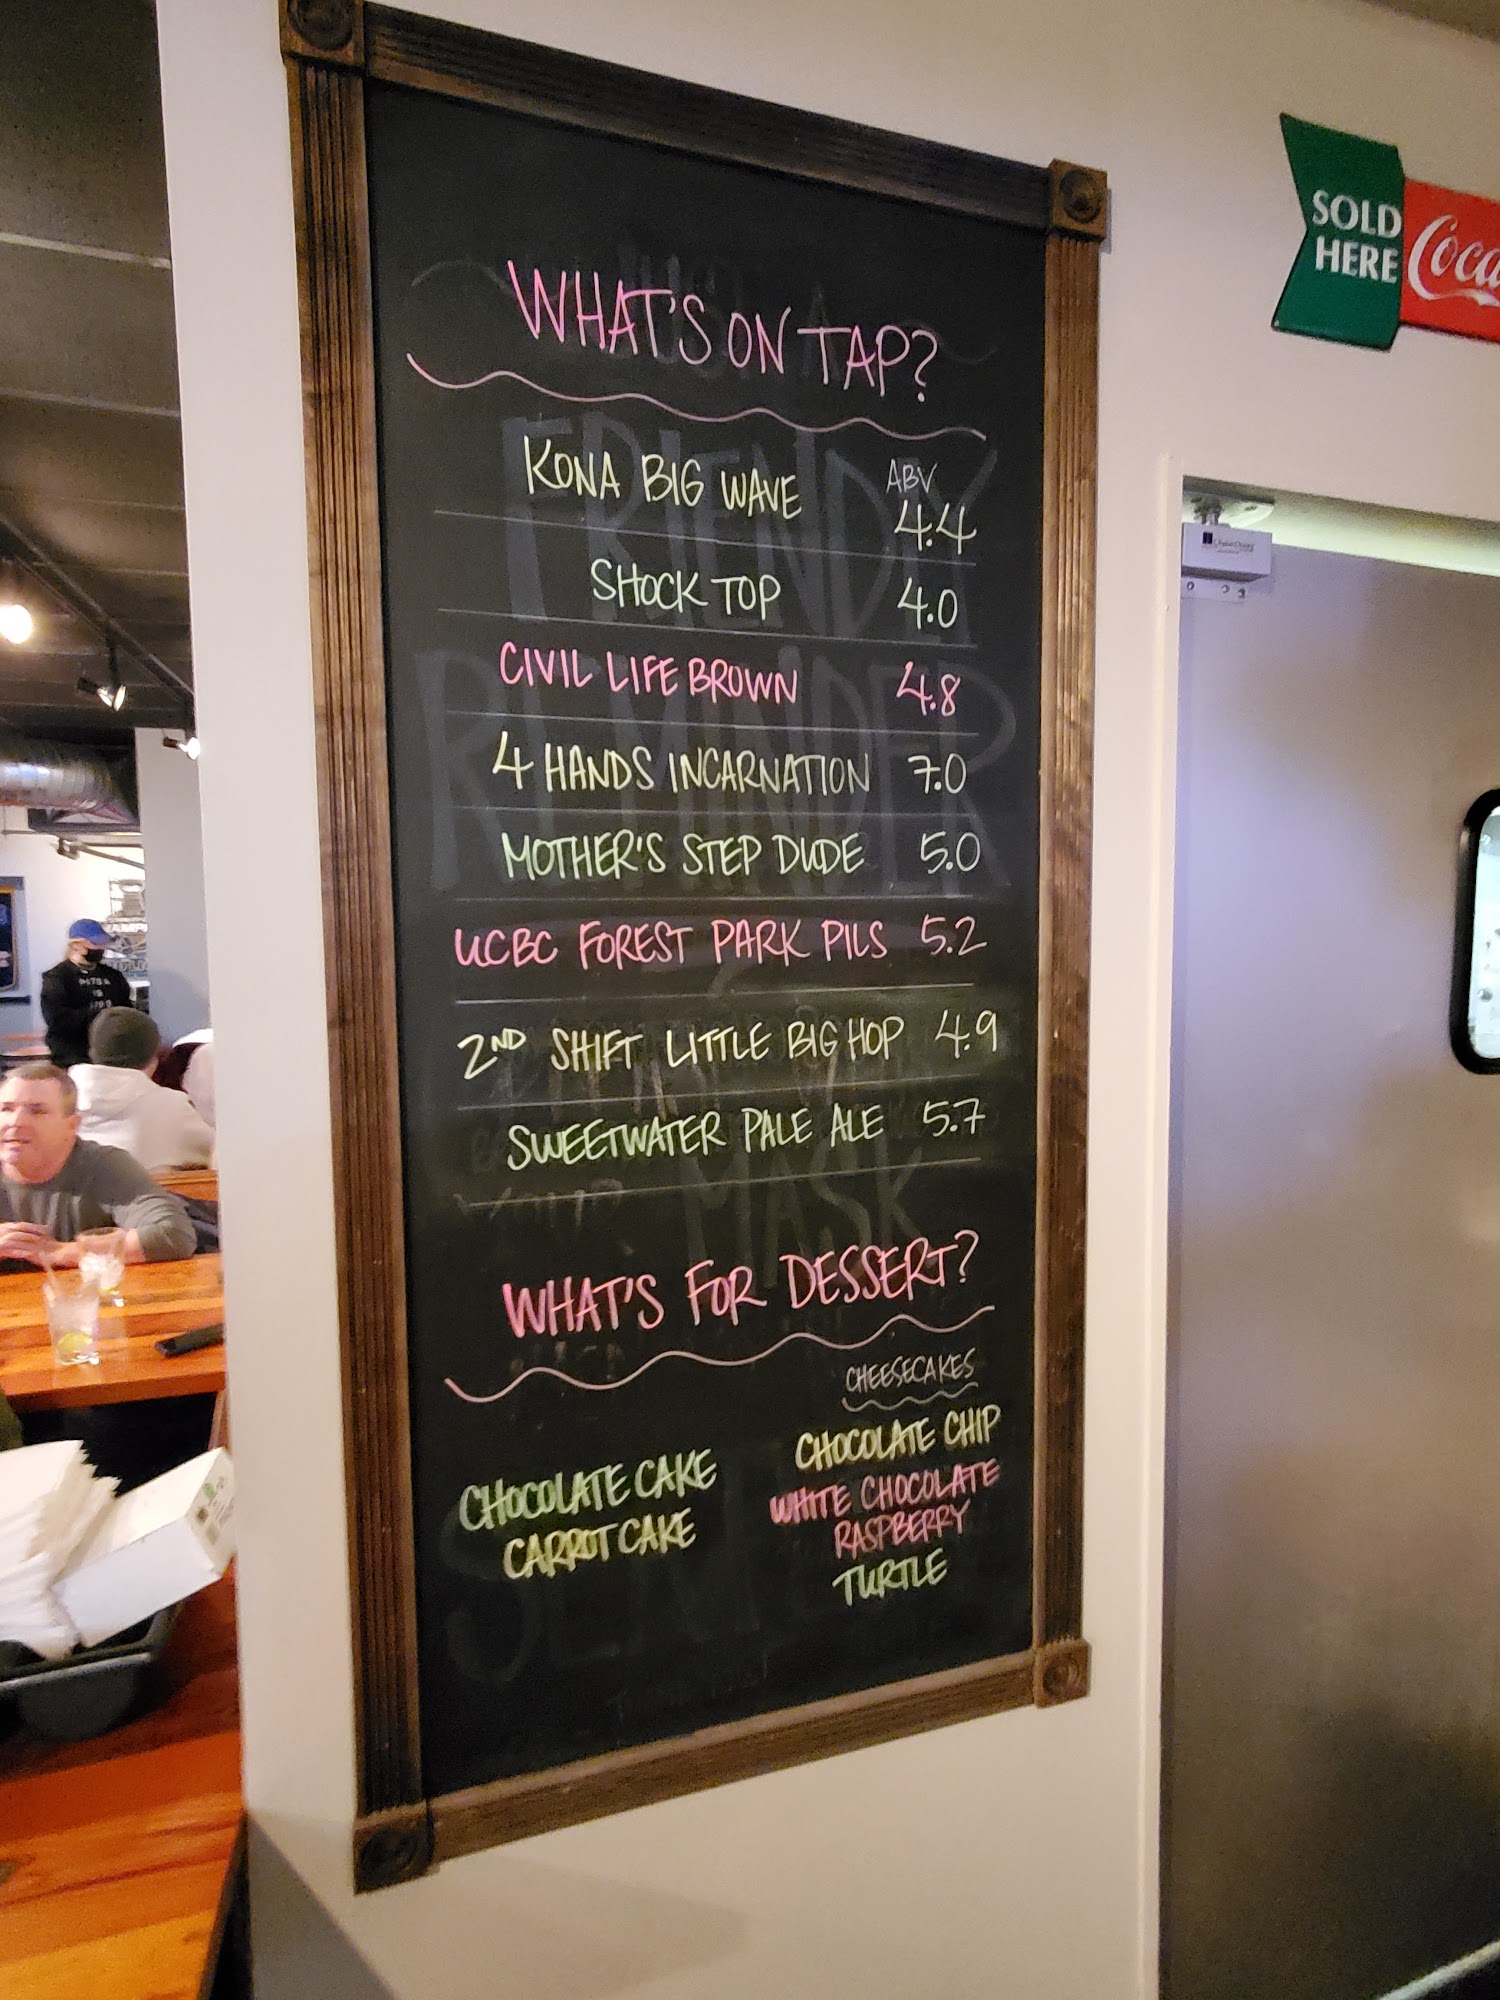 WHAT'S ON TAP?
ABV
KONA BIG WAVE 4.4
SHOCK TOP 4.0
CIVIL LIFE BROWN 4.8
4 HANDS INCARNATION 7.0
MOTHER'S STEP DUDE 5.0
UCBC FOREST PARK PILS 5.2
2ND SHIFT LITTLE BIG HOP 4.9
SWEETWATER PALE ALE 5.7
WHAT'S FOR DESSERT?
CHOCOLATE CAKE
CARROT CAKE
CHEESECAKES
CHOCOLATE CHIP
WHITE CHOCOLATE
RASPBERRY
TURTLE
FRIENDLY
REMINDER
MASK
SOLD
HERE
Coca